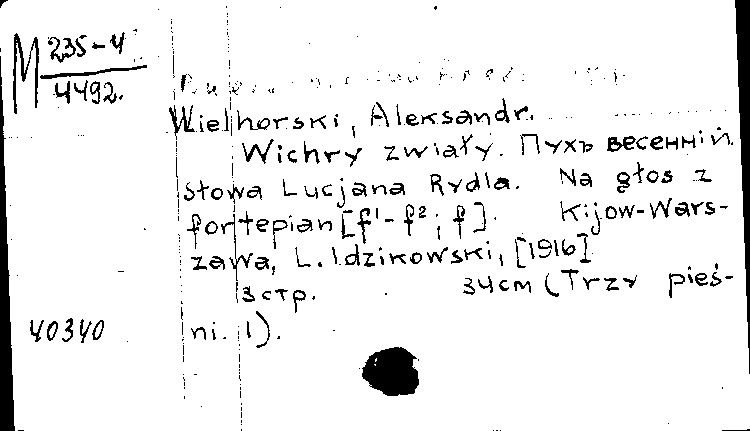 М 235-4
4492.
Wielhorski, Aleksandr.
Wichry zwiały. Пухъ весеннiй.
słowa Lucjana Rydla. Na głos z
fortepian [f¹-f²; f]. Kijow-Wars-
zawa, L. Idzikowski, [1916]
3 стр. 34 cm (Trzy pieś-
40340 ni. 1).